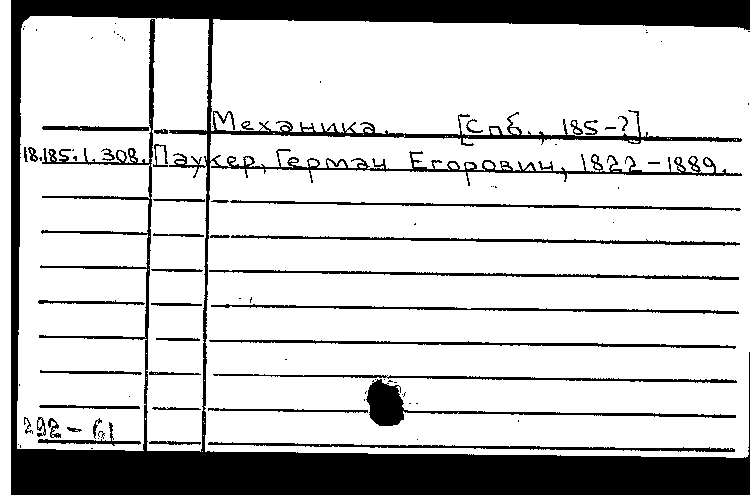 Механика. [Спб., 185-?].
18.185.1.308. Паукер, Герман Егорович, 1822-1889.
292-61